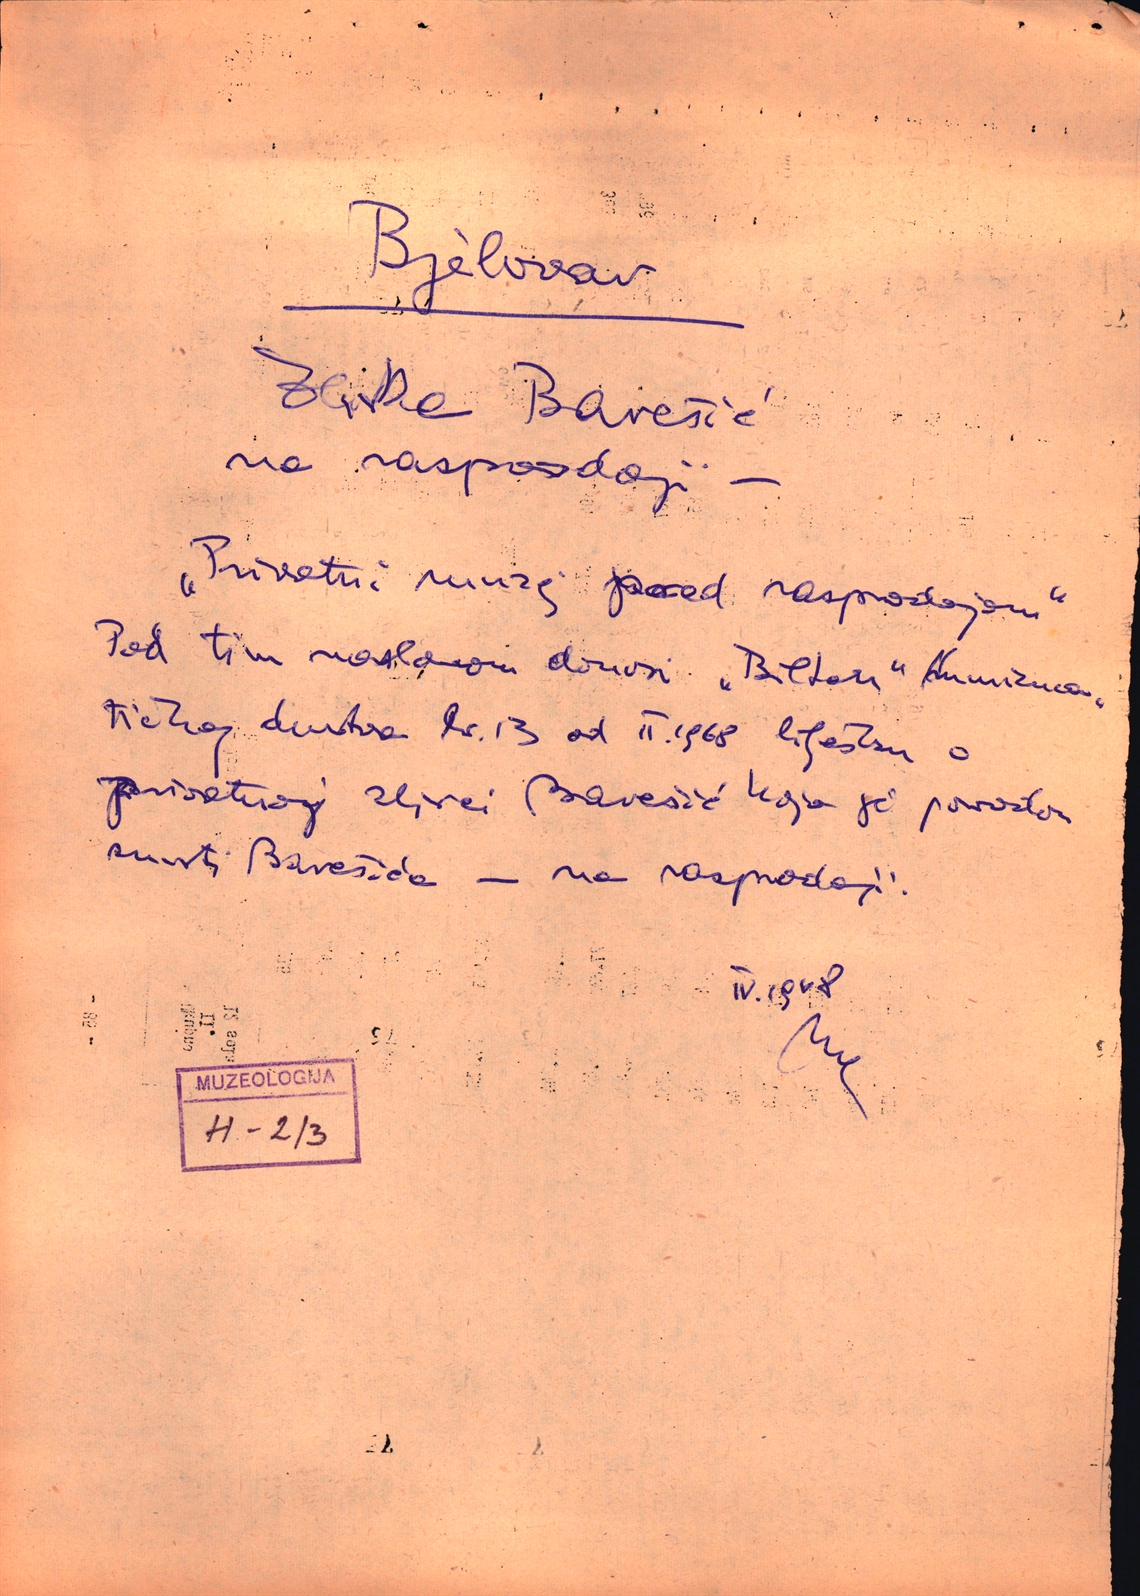 Bjelovar
Zbirka Barešić
na rasprodaji —
„Privatni muzej pred rasprodajom“
Pod tim naslovom donosi „Bilten“ Numizma-
tičkog društva br. 13 od II.1968 bilješku o
privatnoj zbirci Barešić koja je povodom
smrti Barešića — na rasprodaji.
IV.1968
MUZEOLOGIJA
H - 2/3